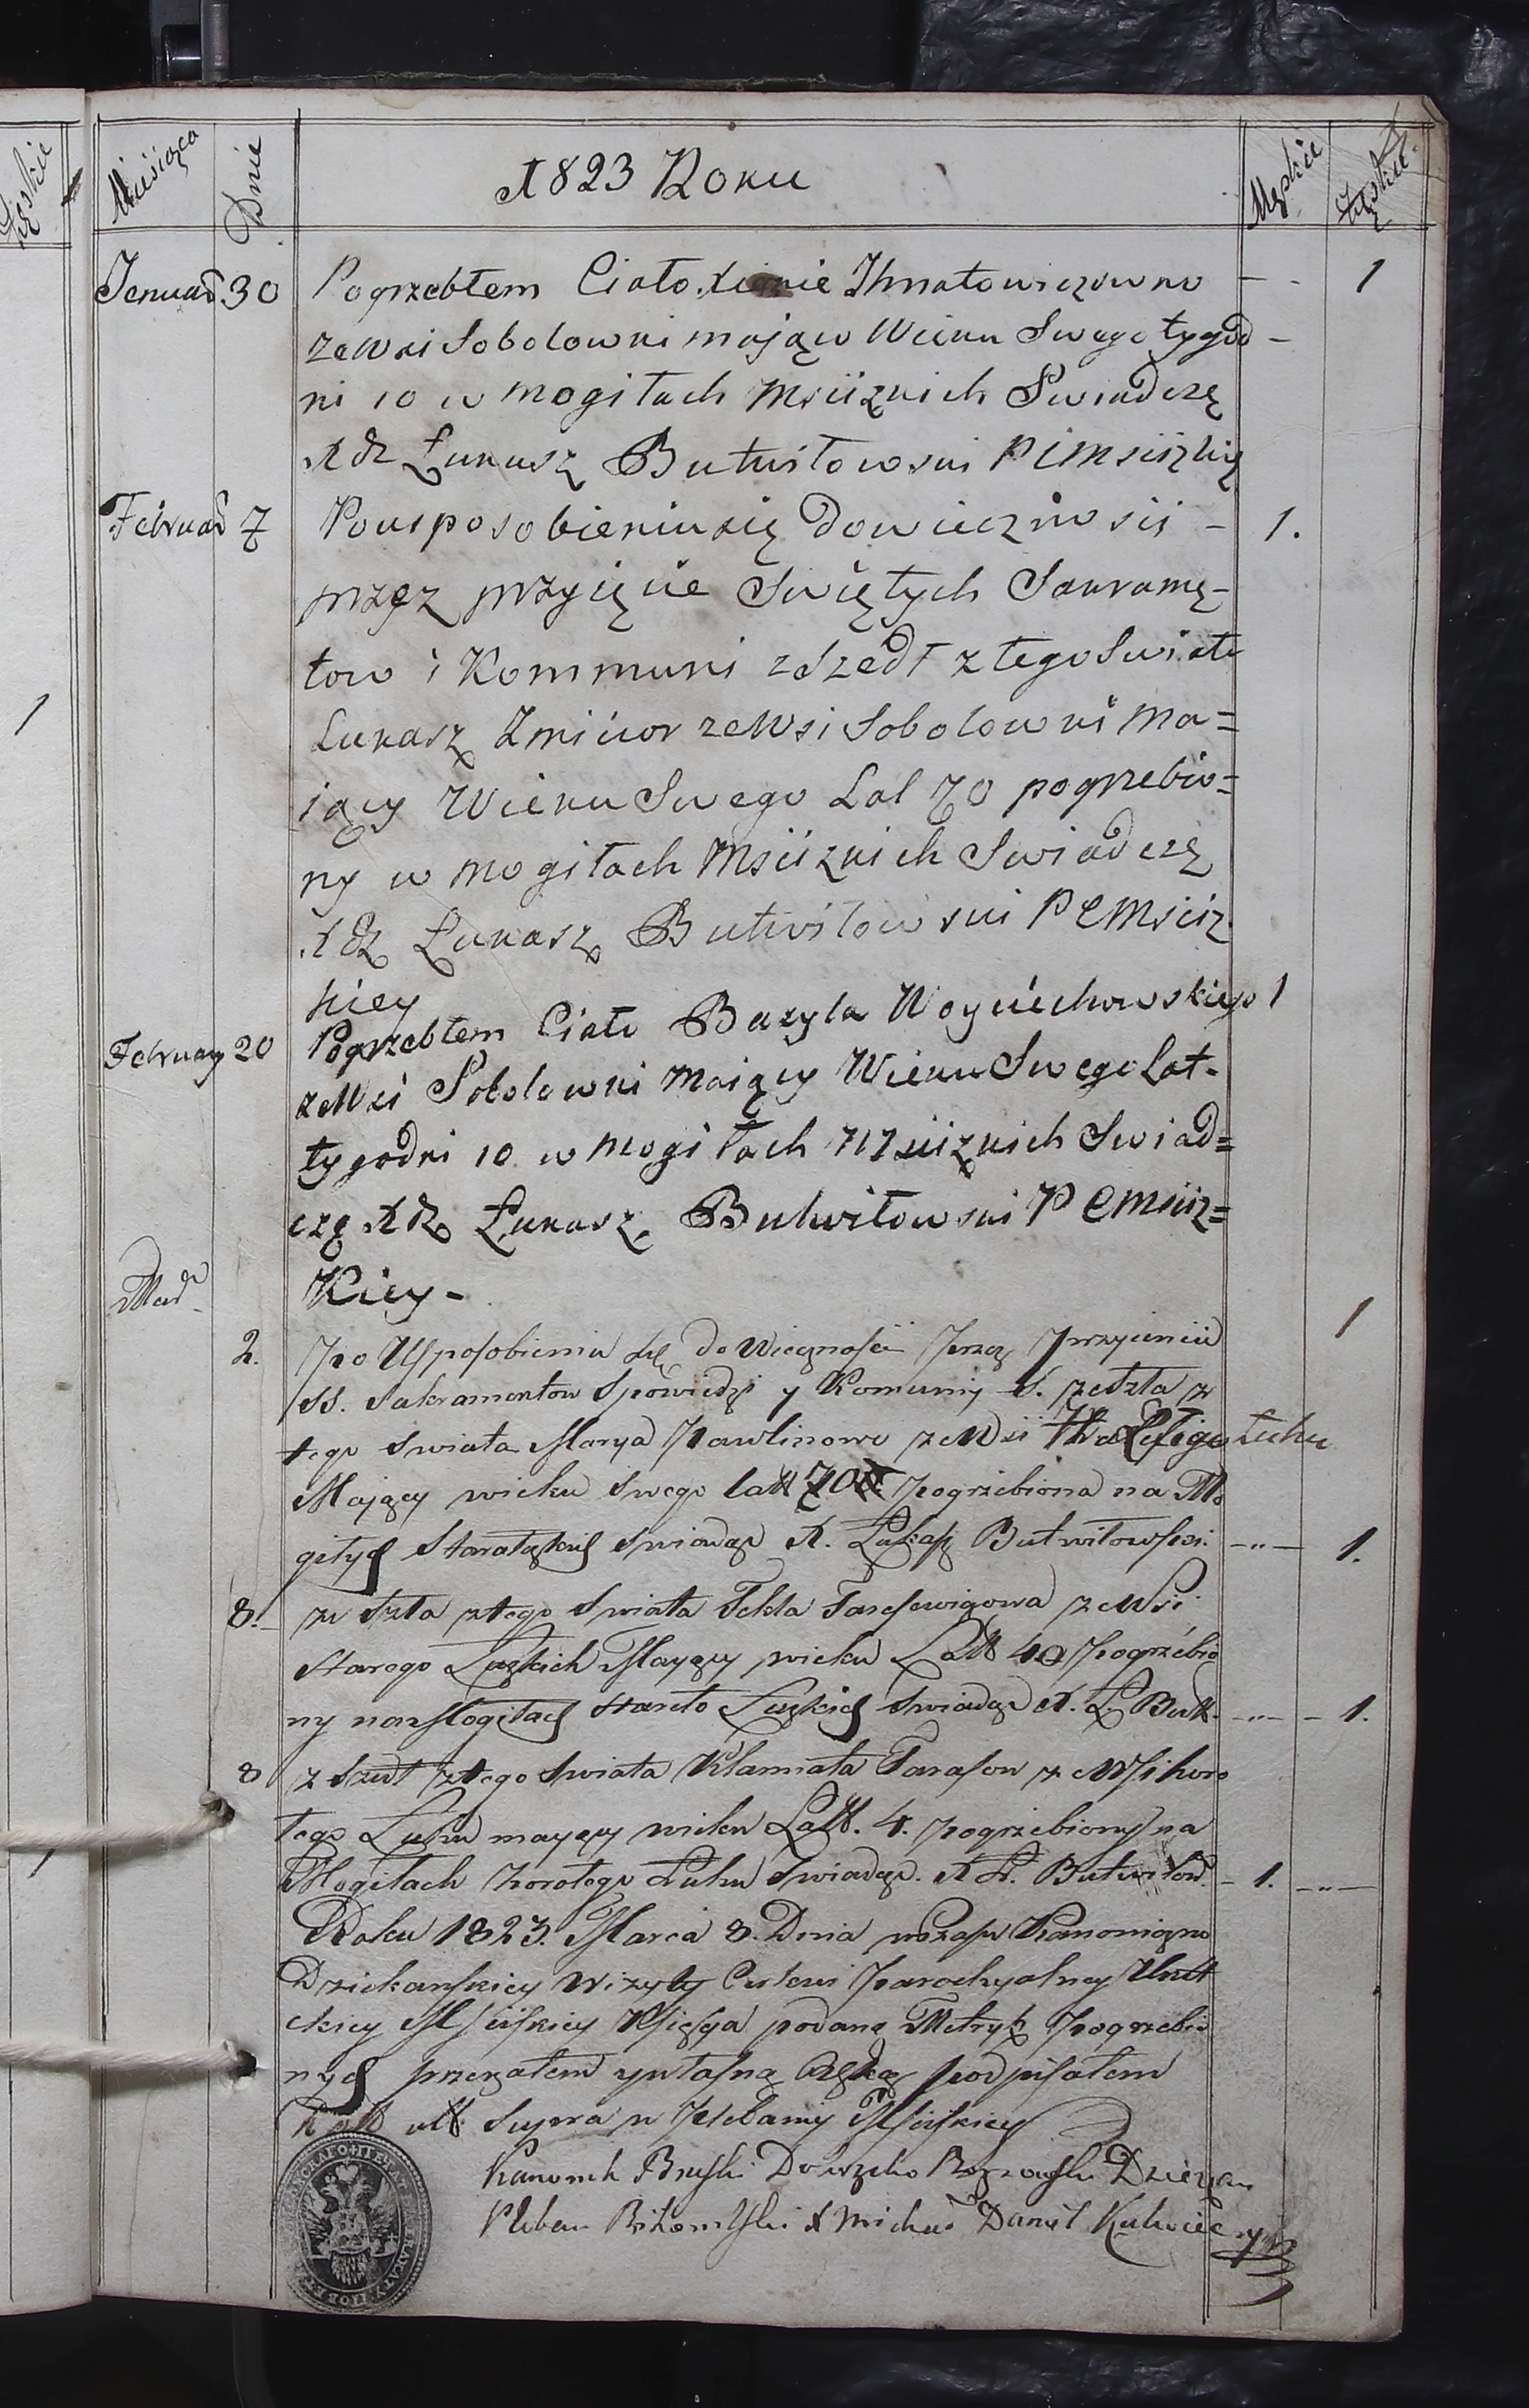 Miesiąca Dnie 1823 Roku Męskie Żęskie
Januar 30 Pogrzebłem Ciało Ihnatowiczowno - - 1
ze Wsi Sobolowki mająco Wieku Swego tygod -
ni 10 w mogiłach Msciżkich Swiadczę
X dz Łukasz Butwiłowski P C Msciżkiy
Februar 7 Pousposobieniu się do wiecznosci - 1.
przez przyięcie Swiętych Sakramę-
tow i Kommuni zszedł z tego Swiata
Łukasz Zmicior ze Wsi Sobolowki ma=
iący Wieku Swego Lat 70 pogrzebio=
ny w mogiłach Msciżkich Swiadczę
X dz Łukasz Butwiłowski P C Msciz
kiey
February 20 Pogrzebłem Ciało Bazyla Woyciechowskiego 1
ze Wsi Sobolowki maiący Wieku Swego Lat-
tygodni 10 w mogiłach Msciżkich Swiad=
czę X dz Łukasz Butwiłowski P C Msciz=
Kiey -
Mar
2. Po Usposobieniu się do Wiecznosci Przez Przyiencie 1
SS. Sakramentow Spowiedzi y Komuniy S. zeszła z
tego Swiata Marya Pawlinowa ze Wsi Łuhu
Mający wieku swego latt 70 pogrzebiona na Mo
giłych Swiadczę X. Łukasz Butwiłowski. -"- 1.
8. ze szła z tego Swiata Tekla Tarasewiczowa ze Wsi
Starego Mayący wieku Latt 40 Pogrzebio
ny na Mogiłach Swiadczę X. Ł. Butt. -"- - 1.
8 z szedł z tego Swiata Tarasow ze Wsi horo
łego Łuhu mayący wieku Latt. 4. pogrzebiony na
Mogiłach horołego Łuhu Swiadczę. X Ł. Butwiłow. - 1. -"-
Roku 1823. Marca 8. Dnia w czasie Kanoniczno
Dziekanskiey Wizyty Cerkwi Parochyalney Unit
ckiey Msciskiey Księgę podaną Metryk Pogrzebio
nych przeyrzałem y własną Ręką podpisałem
Datt utt Supra w Plebaniy Msciskiey
Kanonik Brzeski Dziekan
Pleban X Michał Daniel